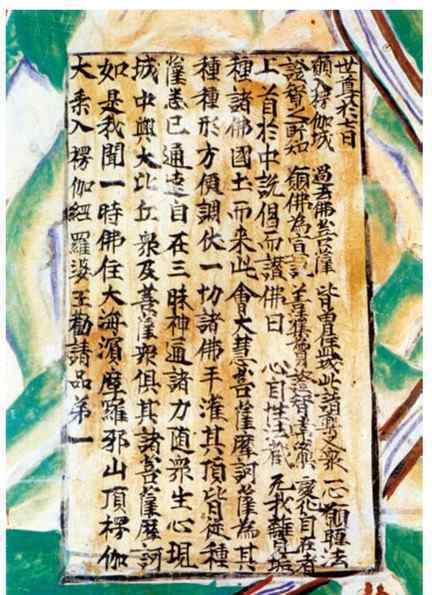 大乘入楞伽經羅婆王勸請品第一
如是我聞一時佛住大海濱摩羅邪山頂楞伽
城中與大比丘衆及菩薩衆俱其諸菩薩摩訶
薩悉已通達自在三昧神通諸力随衆生心現
種種形方便調伏一切諸佛手灌其頂皆從種
種諸佛國土而來此會大慧菩薩摩訶薩為其
上首於中說偈而讚佛曰 心自性法藏 无我離見垢
證智之所知 願佛為宣說 變化自在者
願入楞伽城 過去佛菩薩 皆曾住 此諸夜叉衆 一心願聽法
世尊於七日